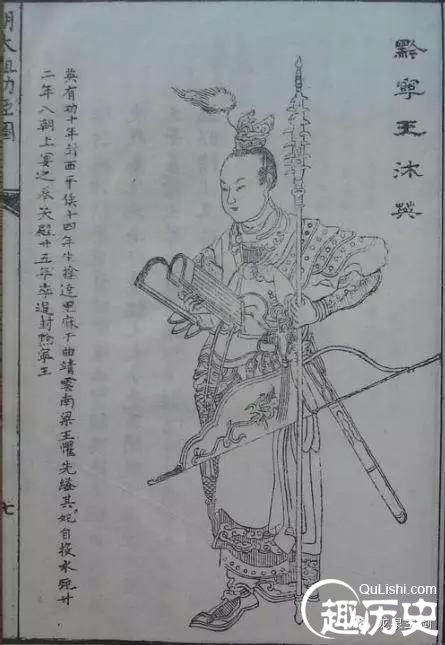 黔寧王沐英
英有功十年封西平侯十四年生擒達里麻下曲靖雲南梁王懼先縊其妃自投水死廿
二年入朝上宴之奉天殿廿五年卒追封黔寧王
明太祖功臣圖
七
QuLishi.com
趣历史